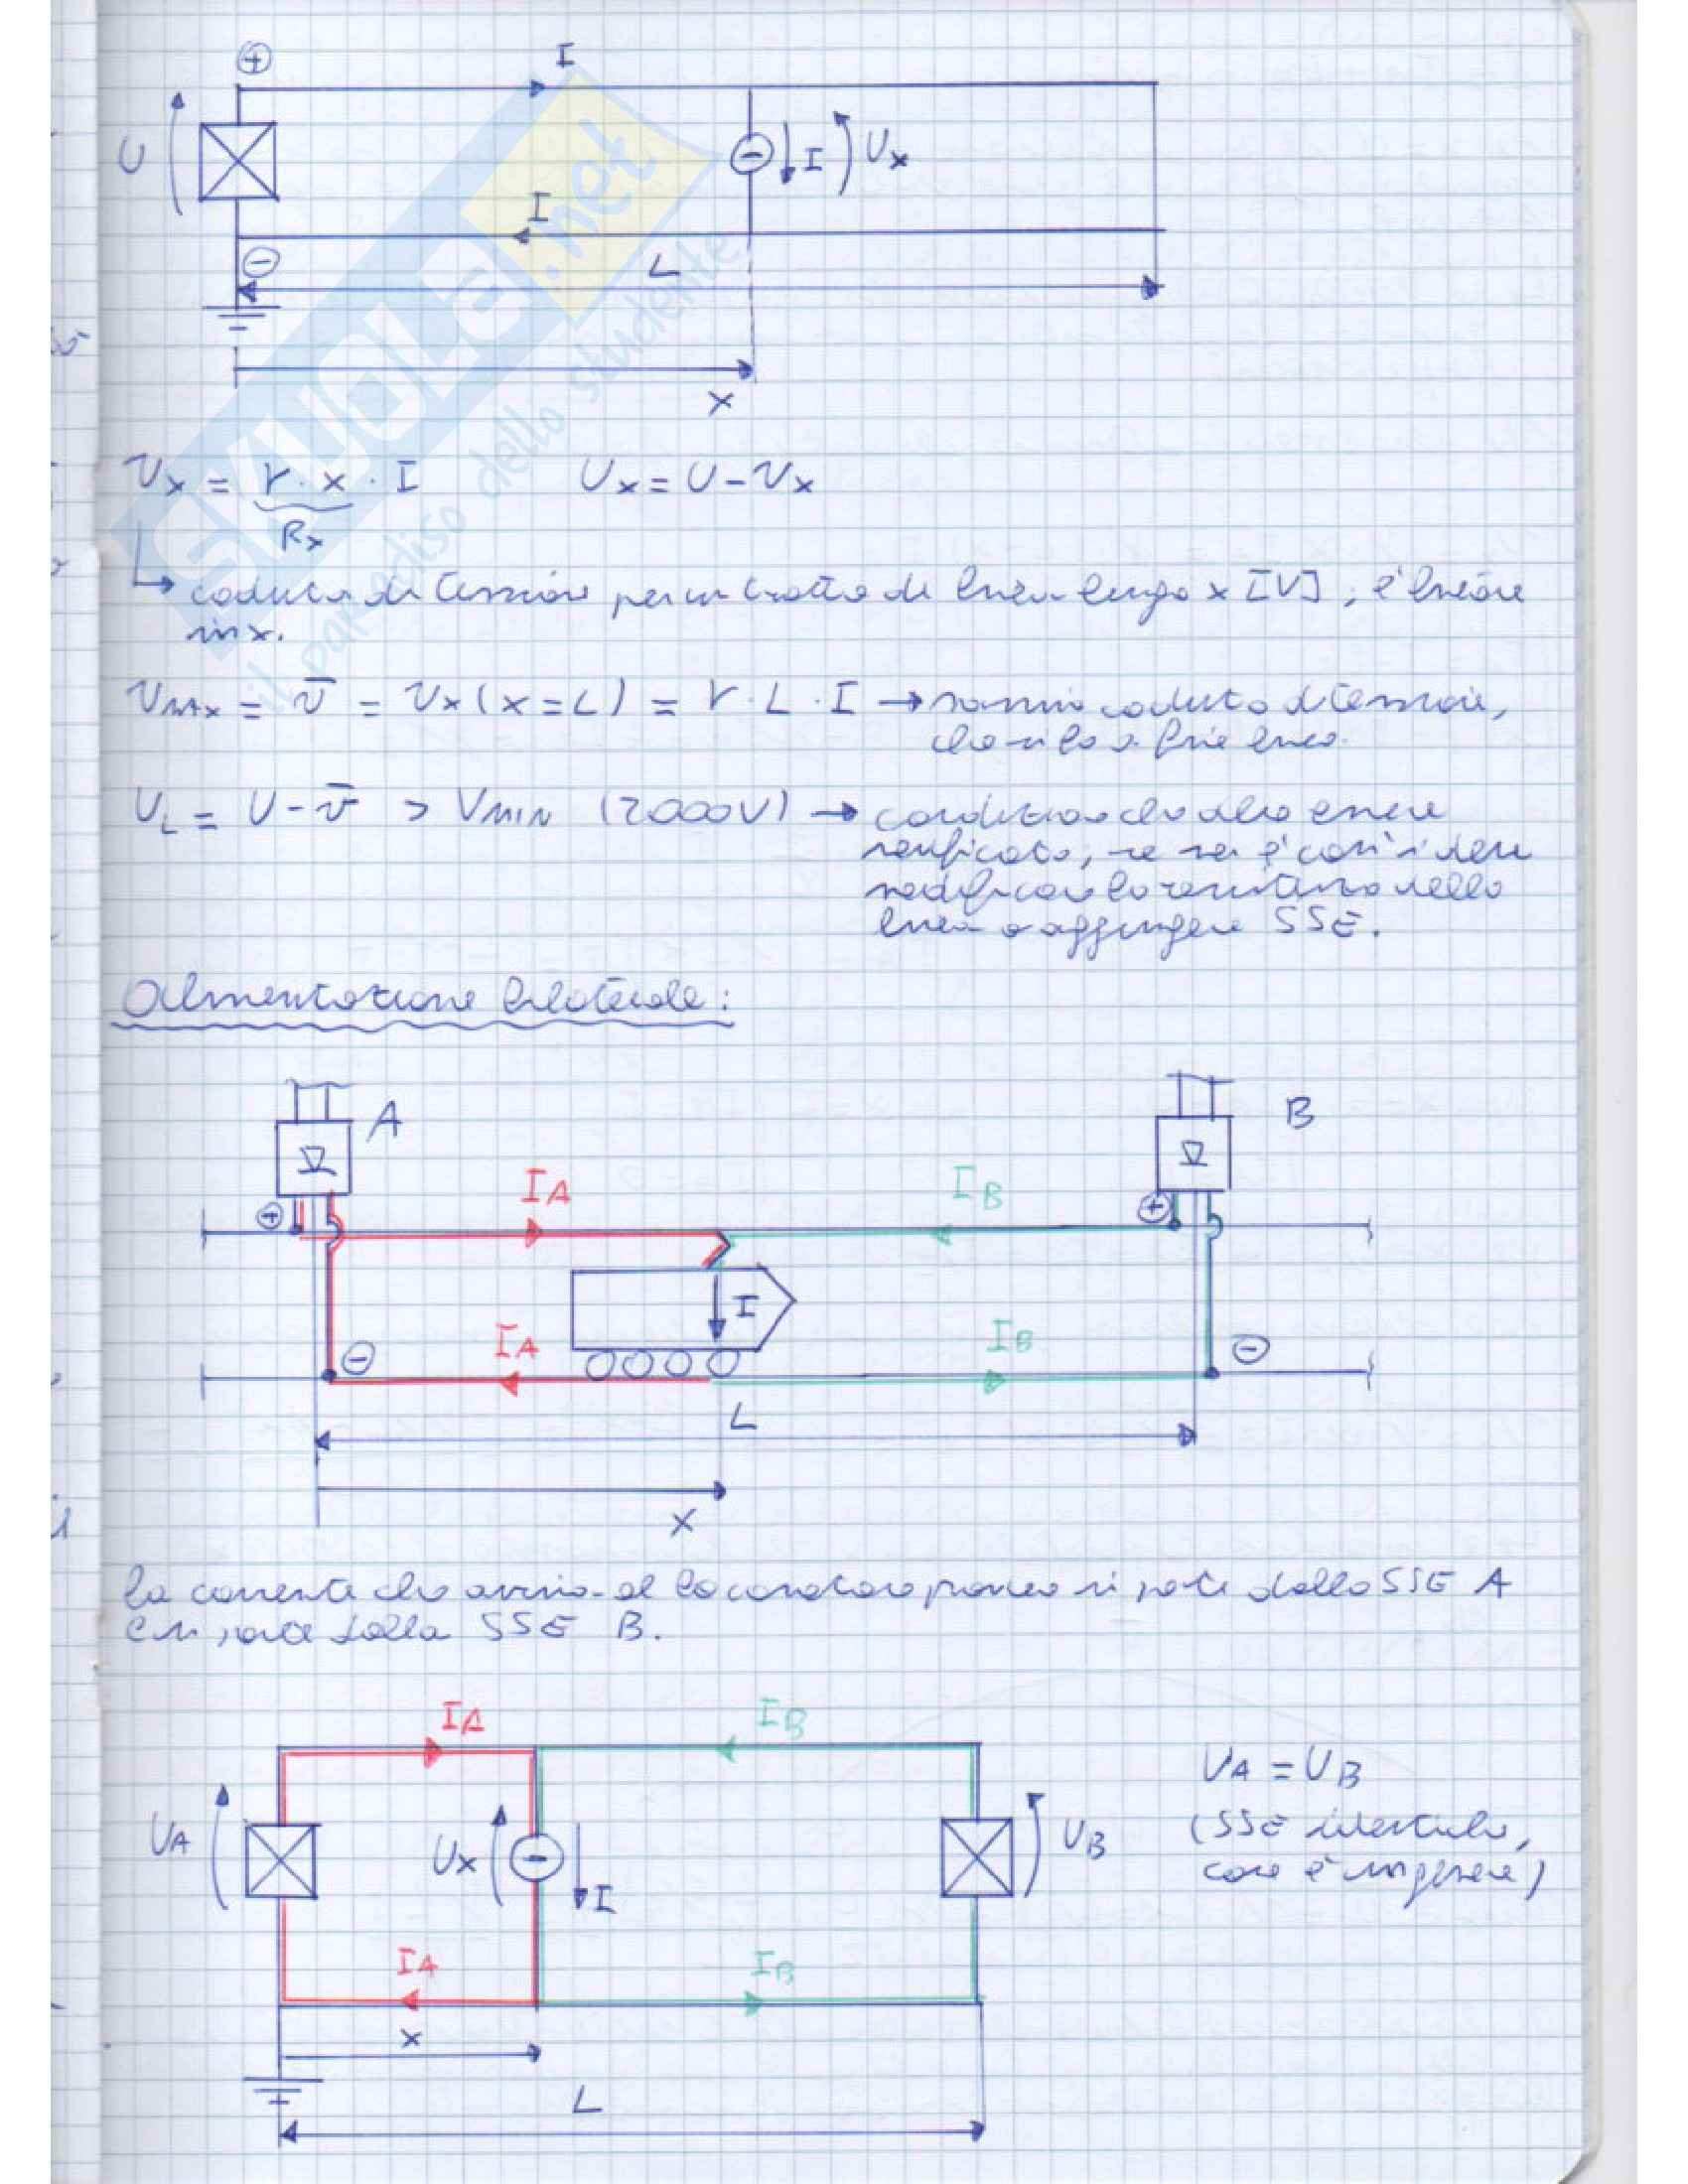 +
I
U
I
Ux
I
−
L
x
vx = r · x · I   Ux = U − vx
Rx
caduta di tensione per un tratto di linea lungo x [V], è lineare
in x.
vMAX = v̄ = vx (x = L) = r · L · I → massima caduta di tensione,
che si ha a fine linea.
UL = U − v̄ > VMIN (2000V) → condizione che deve essere
verificata, se non è così si deve
modificare la resistenza della
linea o aggiungere SSE.
Alimentazione bilaterale:
A
B
IA
IB
+
+
I
IA
IB
−
−
L
x
la corrente che arriva al locomotore proviene in parte dalla SSE A
e in parte dalla SSE B.
IA
IB
UA = UB
UA
Ux
I
UB
(SSE identiche,
come è in genere)
IA
IB
x
L
SKUOLA.net
il paradiso dello studente